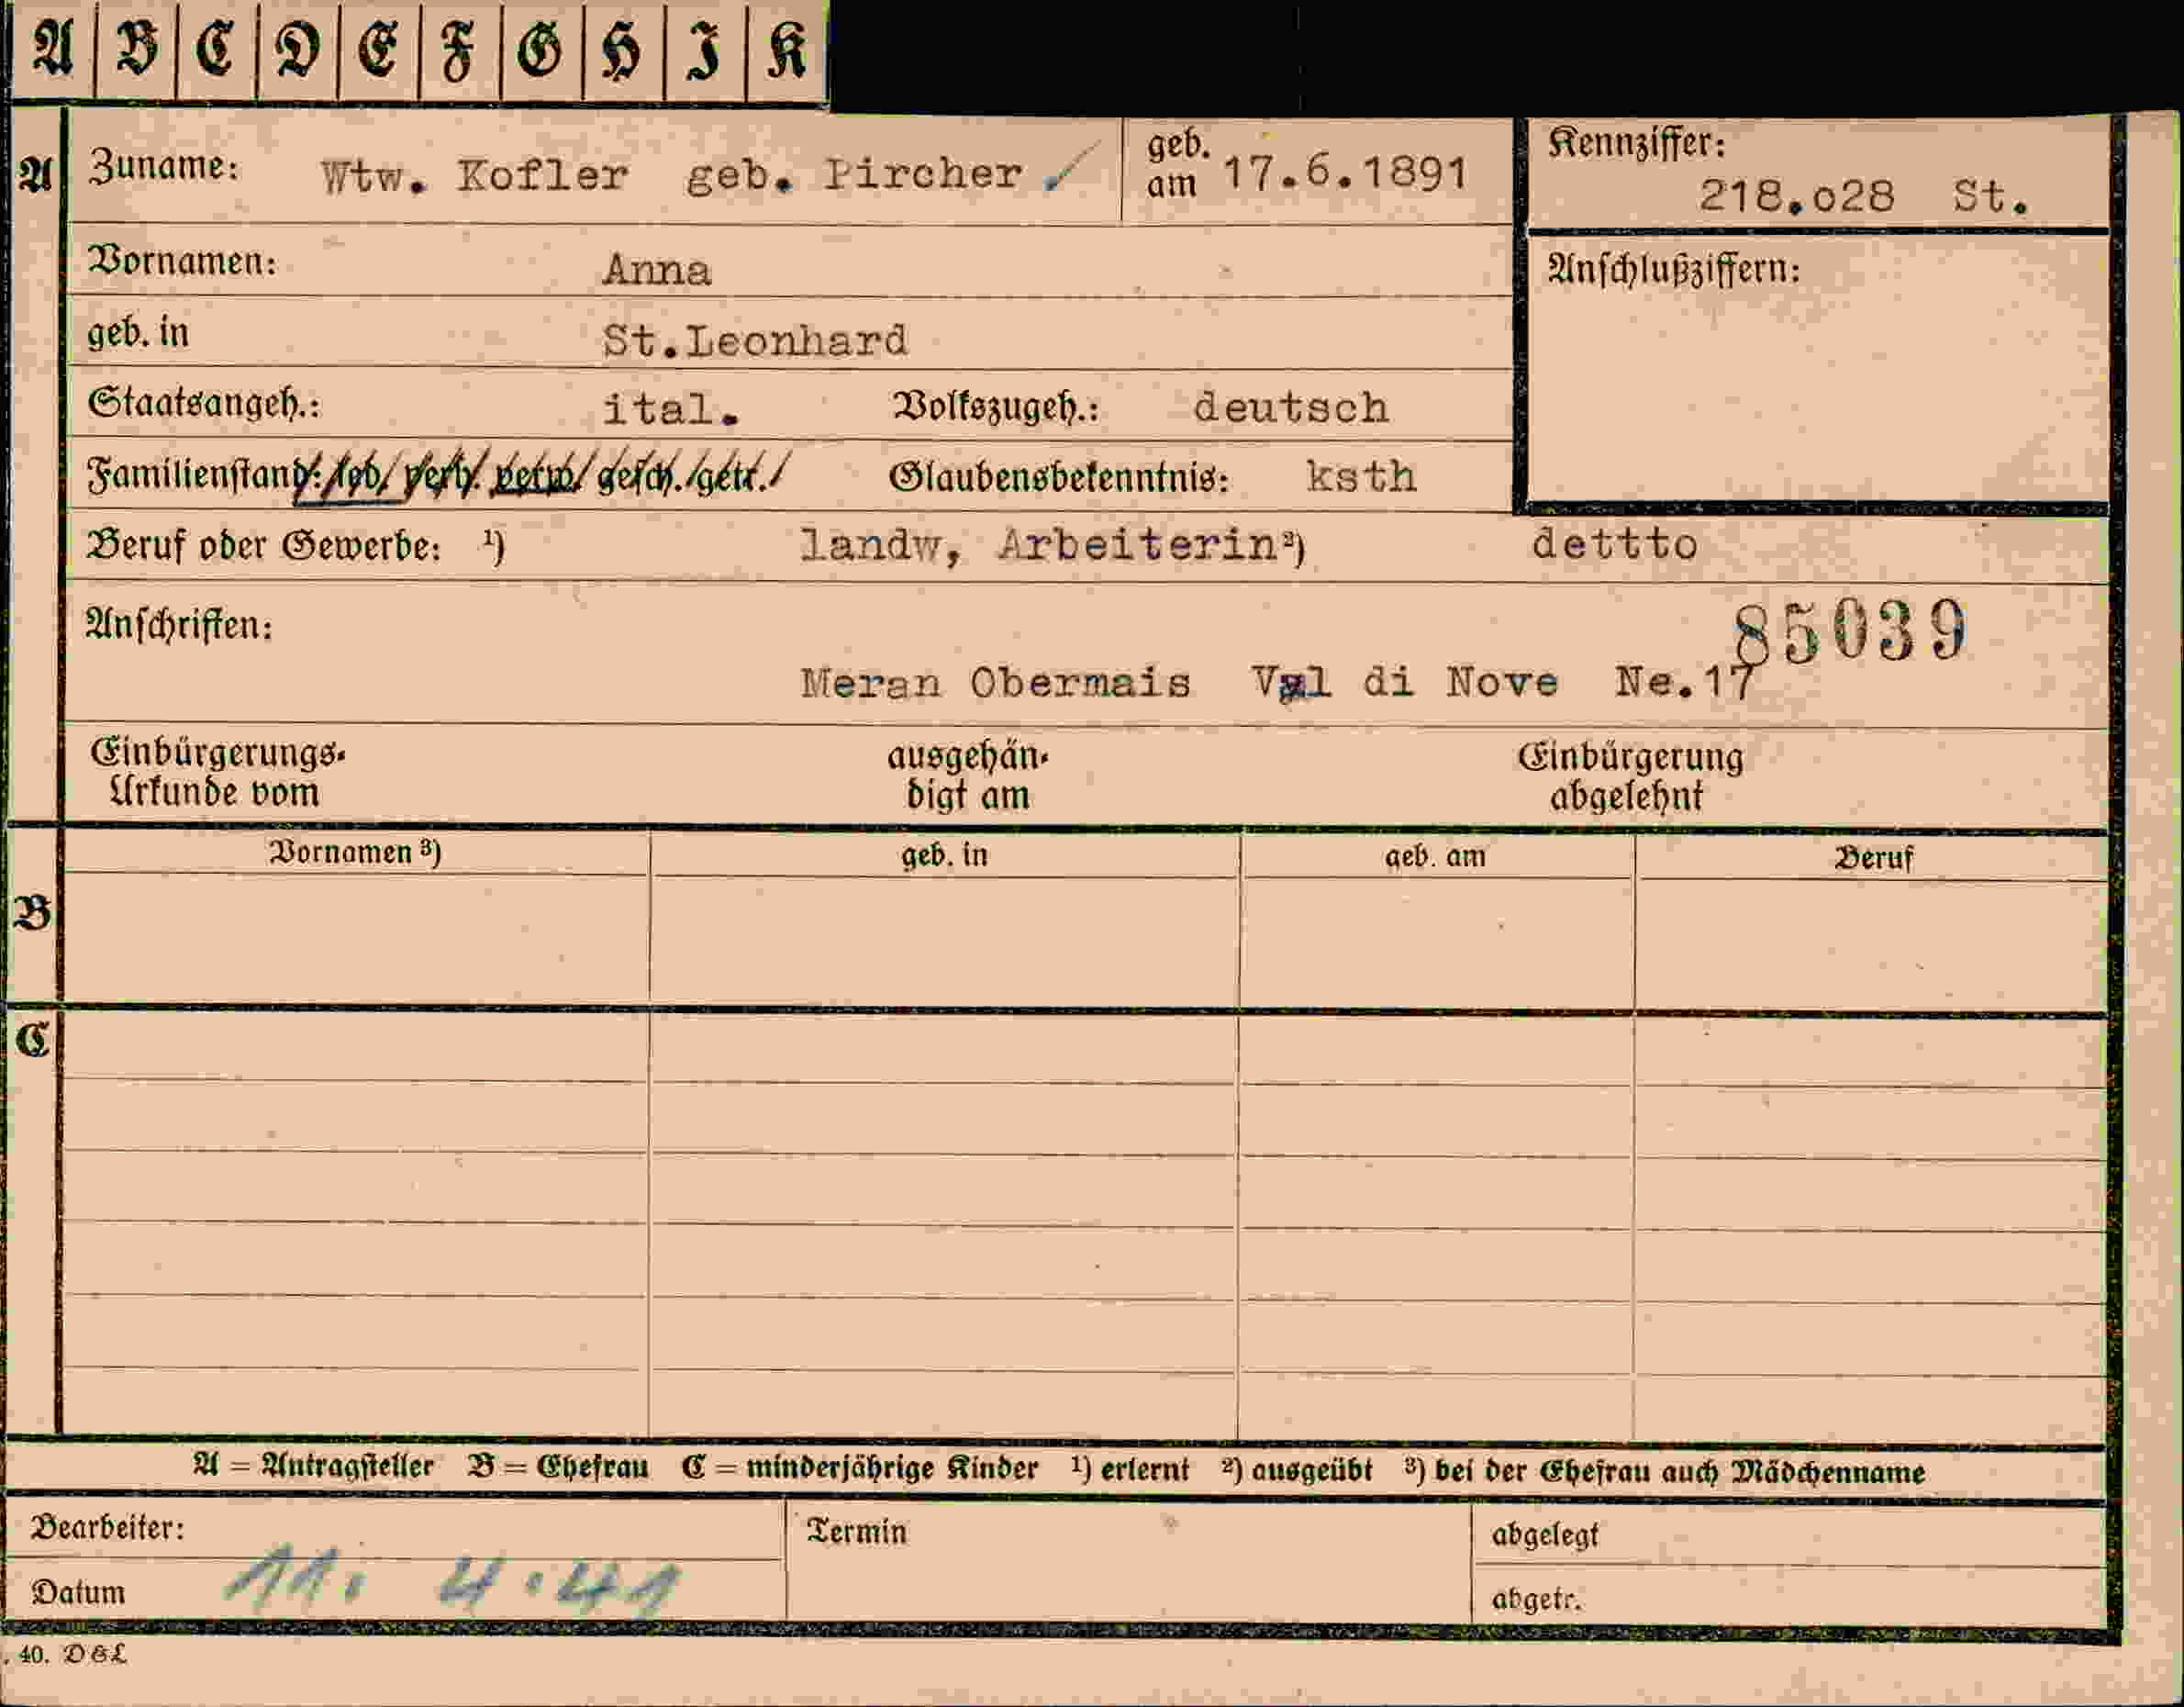 A B C D E F G H I K
A Zuname: Wtw. Kofler geb. Pircher ✓ geb. am 17.6.1891 Kennziffer: 218.o28 St.
Vornamen: Anna Anschlußziffern:
geb. in St.Leonhard
Staatsangeh.: ital. Volkszugeh.: deutsch
Familienstand: led/ verh. verw/ gesch./getr./ Glaubensbekenntnis: ksth
Beruf oder Gewerbe: ¹) landw, Arbeiterin²) dettto
Anschriften: 85039
Meran Obermais Val di Nove Ne.17
Einbürgerungs- ausgehän- Einbürgerung
Urkunde vom digt am abgelehnt
Vornamen ³) geb. in geb. am Beruf
B
C
A = Antragsteller B = Ehefrau C = minderjährige Kinder ¹) erlernt ²) ausgeübt ³) bei der Ehefrau auch Mädchenname
Bearbeiter: Termin abgelegt
Datum 11. 4.41 abgetr.
. 40. D&L